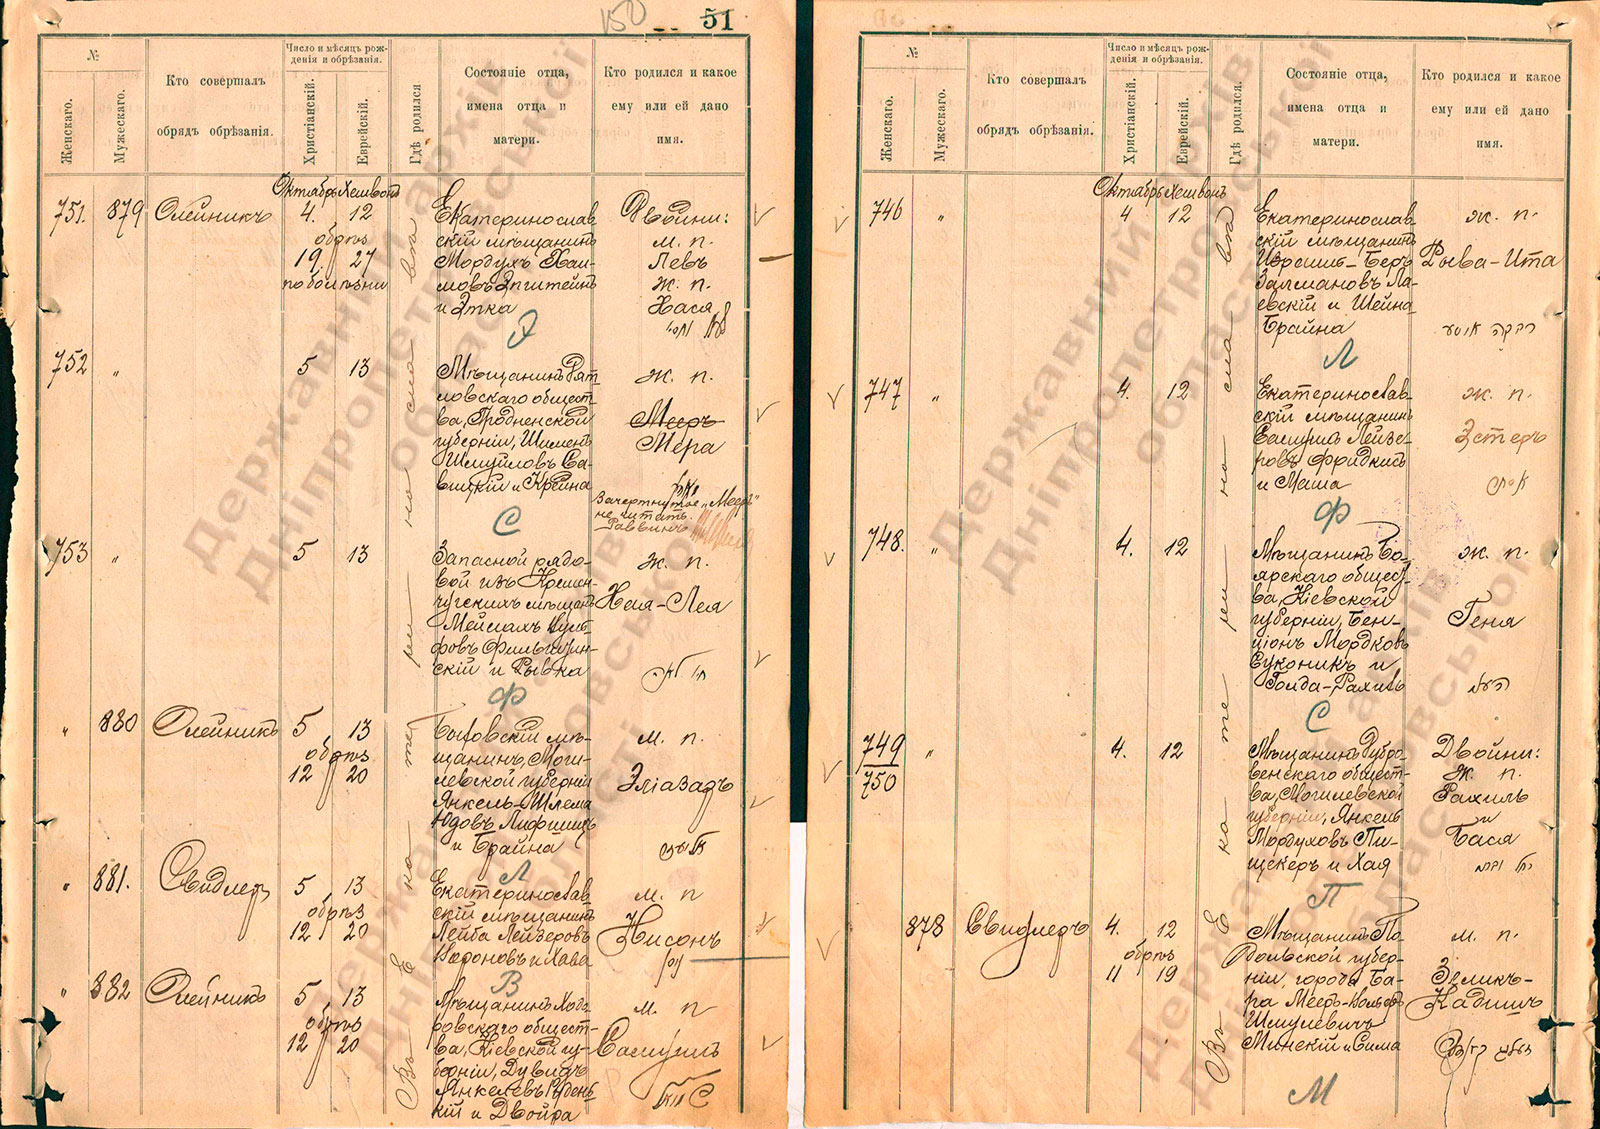 150
51
№
Женскаго.
Мужескаго.
Кто совершалъ
обрядъ обрѣзанія.
Число и мѣсяцъ рож-
денія и обрѣзанія.
Христіанскій.
Еврейскій.
Гдѣ родился
Состояніе отца,
имена отца и
матери.
Кто родился и какое
ему или ей дано
имя.
Въ Екатеринославѣ
Октябрь Хешвонъ
751. 879 Олейникъ 4. 12
обрѣз
19 27
по болѣзни
Екатеринослав
скій мѣщанинъ
Мордухъ Хаи-
мовъ Эпштейнъ
и Этка
Э
Двойни:
м. п.
Левъ
ж. п.
Хася
752 „ 5 13
Мѣщанинъ
ловскаго общест-
ва, Гродненской
губерніи,
Шмуйловъ Са-
вицкій и Крейна
С
ж. п.
Мееръ
Мера
Зачеркнутое „Мееръ"
не читать.
Раввинъ
753 „ 5 13
Запасной рядо-
вой изъ Кремен-
чугскихъ мѣщанъ
скій и Рывка
Ф
ж. п.
Хая-Лея
„ 880 Олейникъ 5 13
обрѣз
12 20
мѣ-
щанинъ, Моги-
левской губерніи
Янкель-Шлема
Юдовъ Лифшицъ
и Брайна
Л
м. п.
Эліазаръ
„ 881. Свидлеръ 5 13
обрѣз
12 20
Екатеринослав-
скій мѣщанинъ
Лейба Лейзеровъ
Вороновъ и Хава
В
м. п
Нисонъ
„ 882 Олейникъ 5 13
обрѣз
12 20
Мѣщанинъ Ходо-
ровскаго общест-
ва, Кіевской гу-
берніи, Дувидъ
Янкелевъ Рудень-
кій и Двойра
м. п
Самуилъ
№
Женскаго.
Мужескаго.
Кто совершалъ
обрядъ обрѣзанія.
Число и мѣсяцъ рож-
денія и обрѣзанія.
Христіанскій.
Еврейскій.
Гдѣ родился.
Состояніе отца,
имена отца и
матери.
Кто родился и какое
ему или ей дано
имя.
Въ Екатеринославѣ
Октябрь Хешвонъ
746 „ 4 12
Екатеринослав
скій мѣщанинъ
Израиль-Беръ
Залмановъ Ла-
евскій и Шейна
Брайна
Л
ж. п.
Рыва-Ита
רבקה איטע
747 „ 4. 12
Екатеринослав-
скій мѣщанинъ
Самуилъ Лейзе-
ровъ Фридкинъ
и Маша
Ф
ж. п.
Эстеръ
748. „ 4. 12
Мѣщанинъ Бо-
ярскаго общест-
ва, Кіевской
губерніи, Бен-
ціонъ Мордковъ
Суконикъ и
Голда-Рахиль
С
ж. п.
Геня
749
750 „ 4. 12
Мѣщанинъ Дубро-
венскаго общест-
ва, Могилевской
губерніи, Янкель
Мордуховъ Пи-
щекеръ и Хая
П
Двойни:
ж. п.
Рахиль
и
Бася
878 Свидлеръ 4. 12
обрѣз
11 19
Мѣщанинъ По-
дольской губер-
ніи, города Ба-
ра Мееръ-Вольфъ
Шмулевичъ
Минскій и Сима
М
м. п.
Зеликъ-
Кадишъ
Державний архів
Дніпропетровської
області